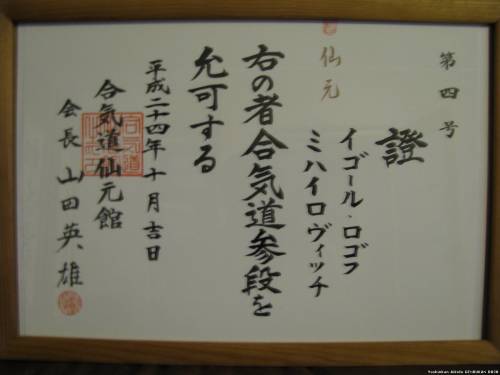 第四号
證
イゴール・ロゴフ
ミハイロヴィッチ
仙元
右の者合気道参段を
允可する
平成二十四年十月吉日
合気道仙元館
会長 山田英雄